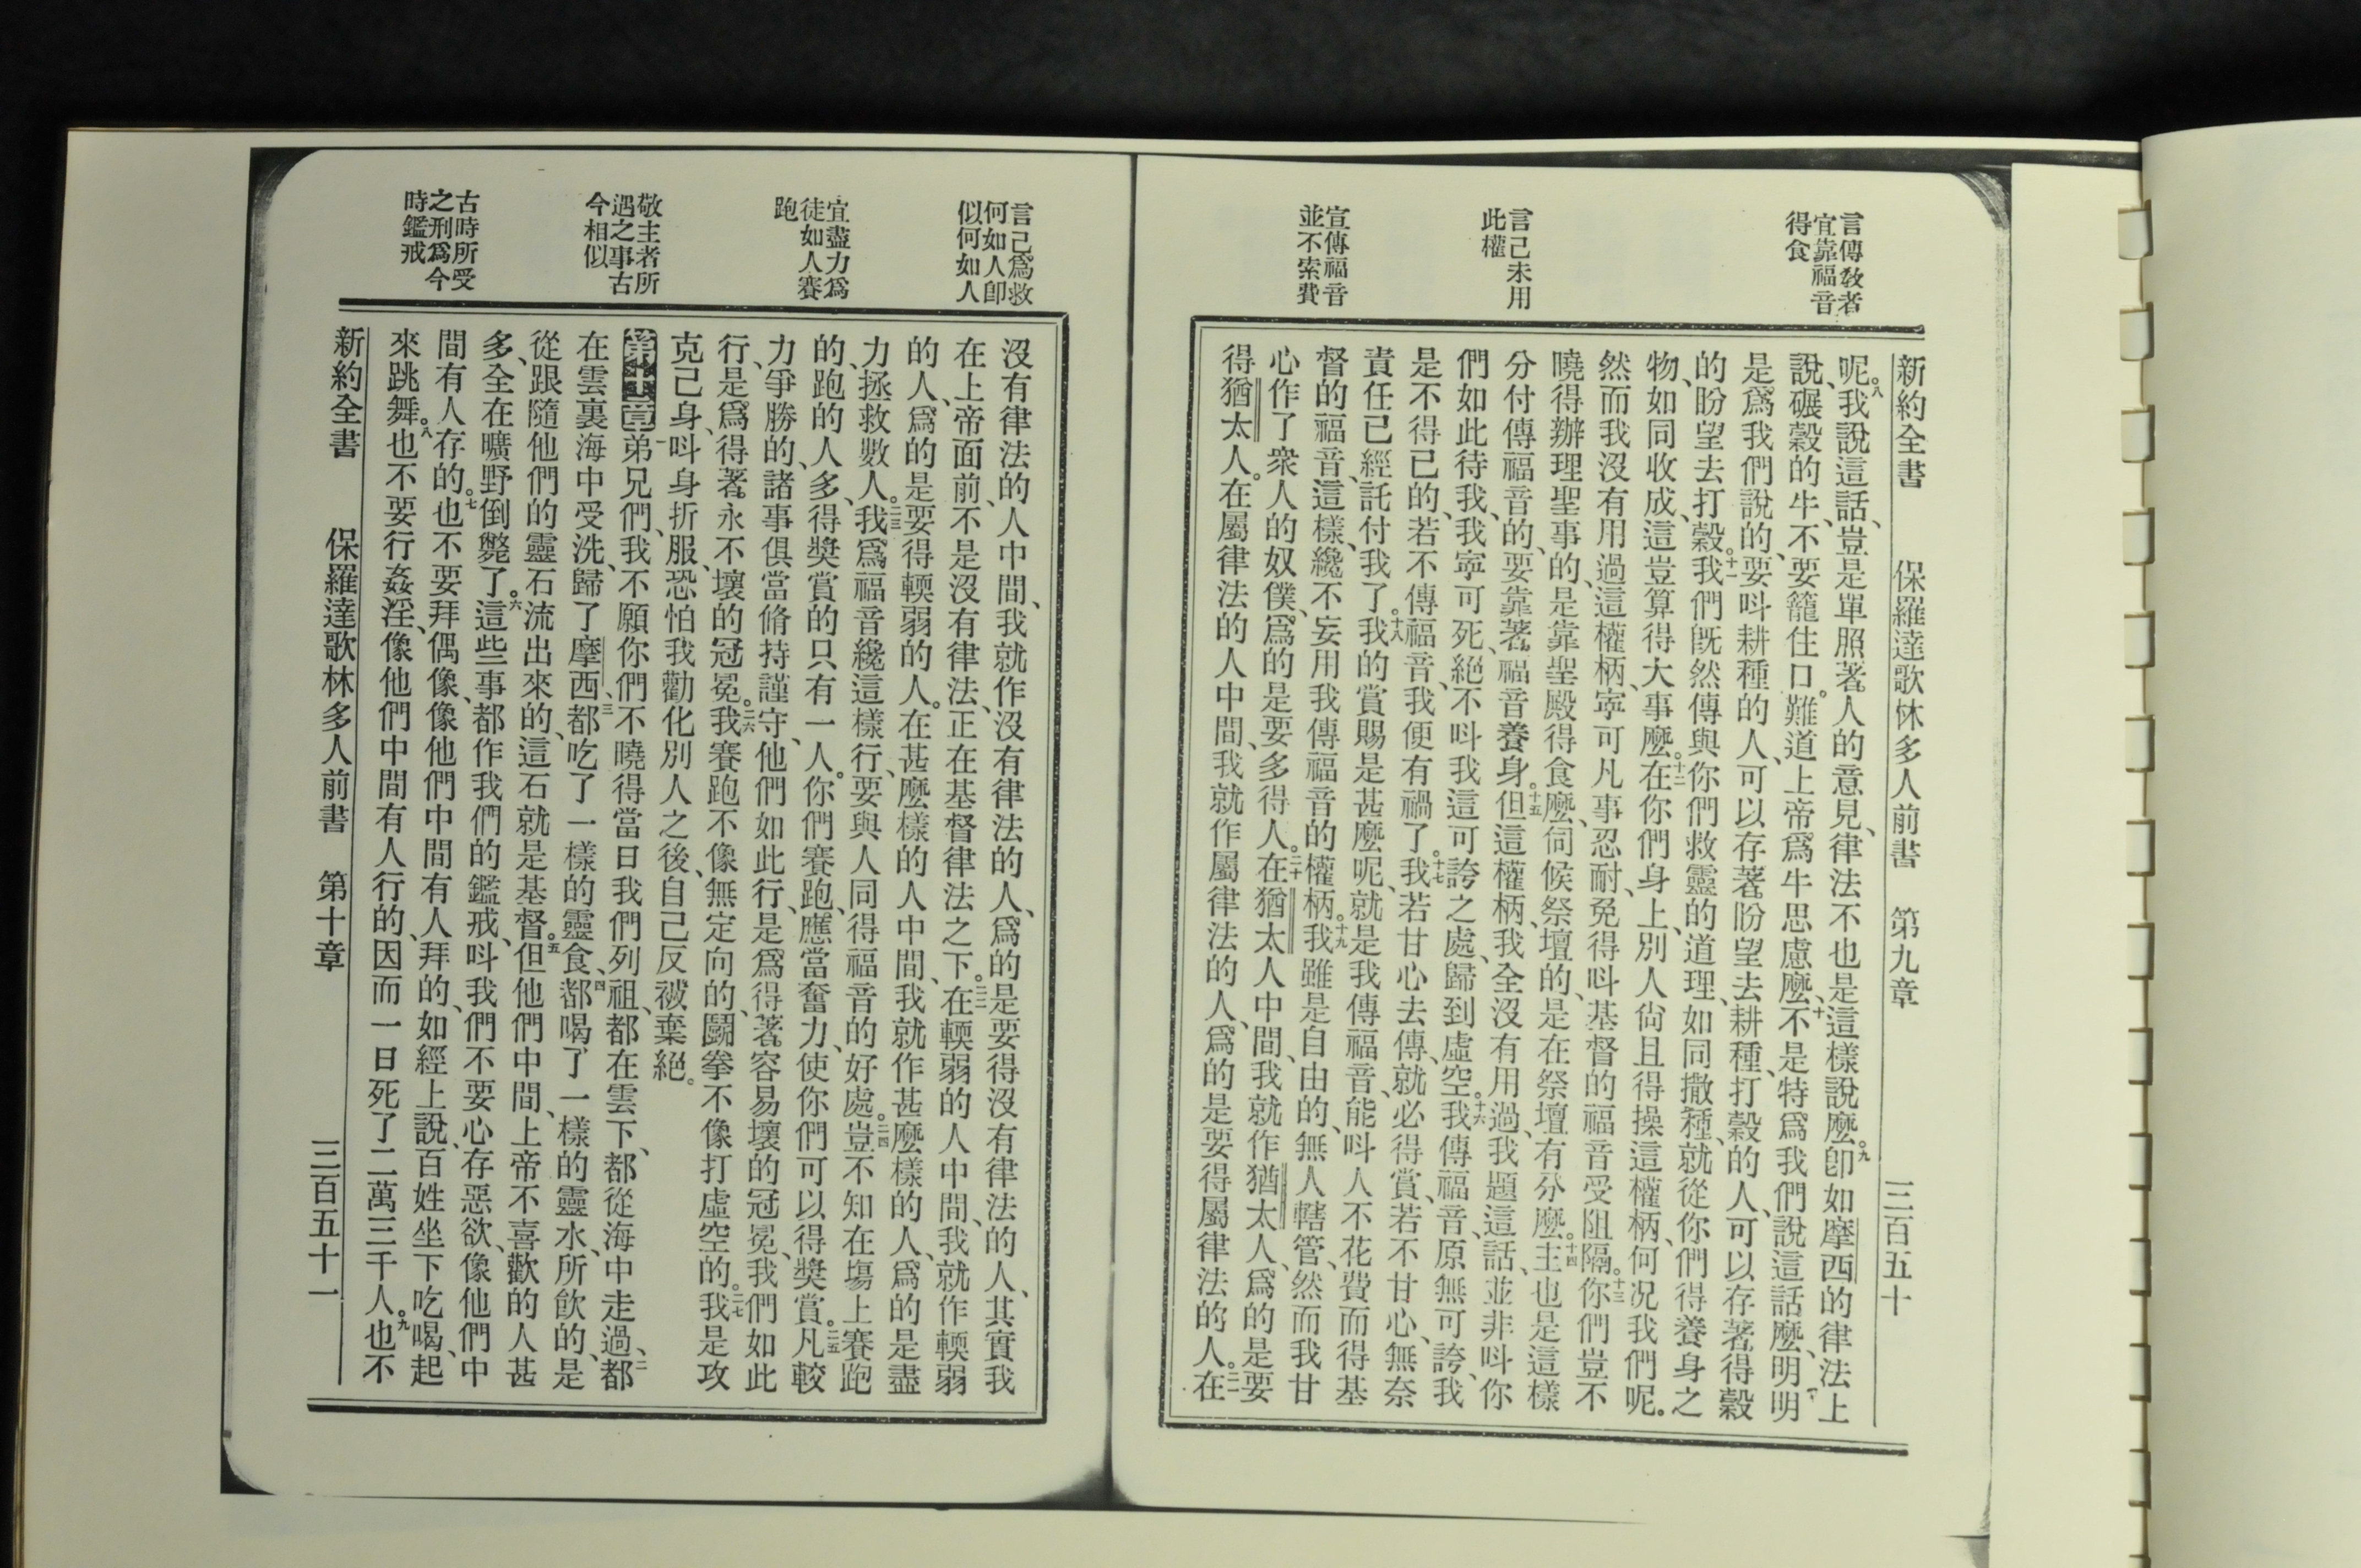 言傳敎者
宜靠福音
得食
言己未用
此權
宣傳福音
並不索費
新約全書　保羅達歌林多人前書　第九章　三百五十
呢。八我說這話、豈是單照著人的意見、律法不也是這樣說麼。九卽如摩西的律法上
說、碾穀的牛、不要籠住口。難道上帝爲牛思慮麼、十不是特爲我們說這話麼、明明
是爲我們說的、要呌耕種的人、可以存著盼望去耕種、打穀的人、可以存著得穀
的盼望去打穀。十一我們旣然傳與你們救靈的道理、如同撒種、就從你們得養身之
物、如同收成、這豈算得大事麼。十二在你們身上、別人尙且得操這權柄、何况我們呢。
然而我沒有用過這權柄、寧可凡事忍耐、免得呌基督的福音受阻隔。十三你們豈不
曉得辦理聖事的、是靠聖殿得食麼、伺候祭壇的、是在祭壇有分麼。十四主也是這樣
分付傳福音的、要靠著福音養身。十五但這權柄、我全沒有用過、我題這話、並非呌你
們如此待我、我寧可死、絕不呌我這可誇之處、歸到虛空。十六我傳福音、原無可誇、我
是不得已的、若不傳福音、我便有禍了。十七我若甘心去傳、就必得賞、若不甘心、無奈
責任已經託付我了。十八我的賞賜是甚麼呢、就是我傳福音、能呌人不花費而得基
督的福音、這樣、纔不妄用我傳福音的權柄。十九我雖是自由的、無人轄管、然而我甘
心作了衆人的奴僕、爲的是要多得人。二十在猶太人中間、我就作猶太人、爲的是要
得猶太人。在屬律法的人中間、我就作屬律法的人、爲的是要得屬律法的人。二一在
言己爲救
何如人卽
似何如人
宜盡力爲
徒如人賽
跑
敬主者所
遇之事古
今相似
古時所受
之刑爲今
時鑑戒
沒有律法的人中間、我就作沒有律法的人、爲的是要得沒有律法的人、其實我
在上帝面前、不是沒有律法、正在基督律法之下。二二在輭弱的人中間、我就作輭弱
的人、爲的是要得輭弱的人。在甚麼樣的人中間、我就作甚麼樣的人、爲的是盡
力拯救數人。二三我爲福音纔這樣行、要與人同得福音的好處。二四豈不知在塲上賽跑
的、跑的人多、得奬賞的只有一人。你們賽跑、應當奮力、使你們可以得奬賞。二五凡較
力爭勝的、諸事俱當脩持謹守、他們如此行、是爲得著容易壞的冠冕、我們如此
行、是爲得著永不壞的冠冕。二六我賽跑不像無定向的、鬭拳不像打虛空的。二七我是攻
克己身、呌身折服、恐怕我勸化別人之後、自己反被棄絕。
第十章一弟兄們、我不願你們不曉得當日我們列祖、都在雲下、都從海中走過、二都
在雲裏海中受洗、歸了摩西、三都吃了一樣的靈食、四都喝了一樣的靈水、所飮的、是
從跟隨他們的靈石流出來的、這石就是基督。五但他們中間、上帝不喜歡的人甚
多、全在曠野倒斃了。六這些事都作我們的鑑戒、呌我們不要心存惡欲、像他們中
間有人存的。七也不要拜偶像、像他們中間有人拜的、如經上說、百姓坐下吃喝、起
來跳舞。八也不要行姦淫、像他們中間有人行的、因而一日死了二萬三千人。九也不
新約全書　保羅達歌林多人前書　第十章　三百五十一